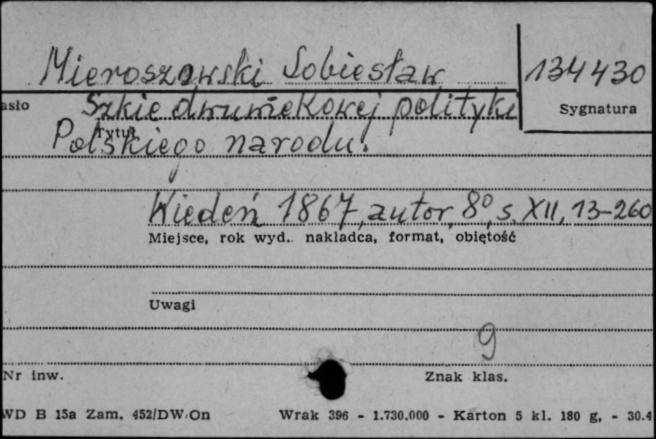 Mieroszowski Sobiesław
134430
asło
Szkic dwuwiekowej polityki
Sygnatura
Tytuł
Polskiego narodu.
Wiedeń 1867, autor, 8°, s. XII, 13-260
Miejsce, rok wyd.. nakladca, format, obiętość
Uwagi
9
Nr inw.
Znak klas.
WD B 15a Zam. 452/DW/On Wrak 396 - 1.730.000 - Karton 5 kl. 180 g, - 30.4